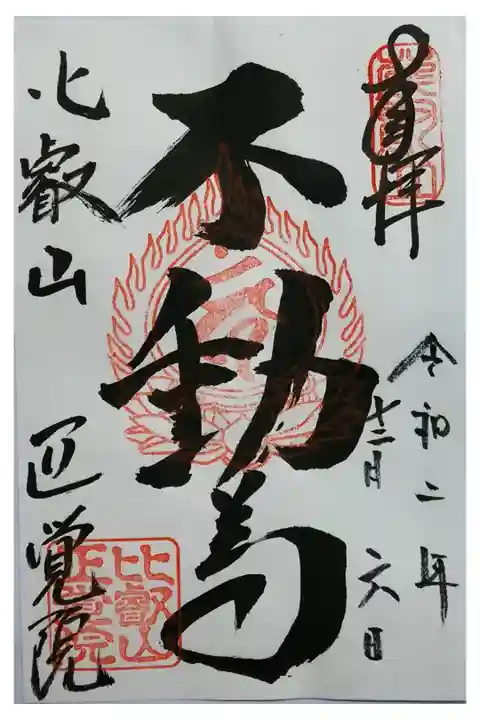 奉拝
令和二年
十二月 六日
不動尊
比叡山 正覚院
比叡山
正覺院